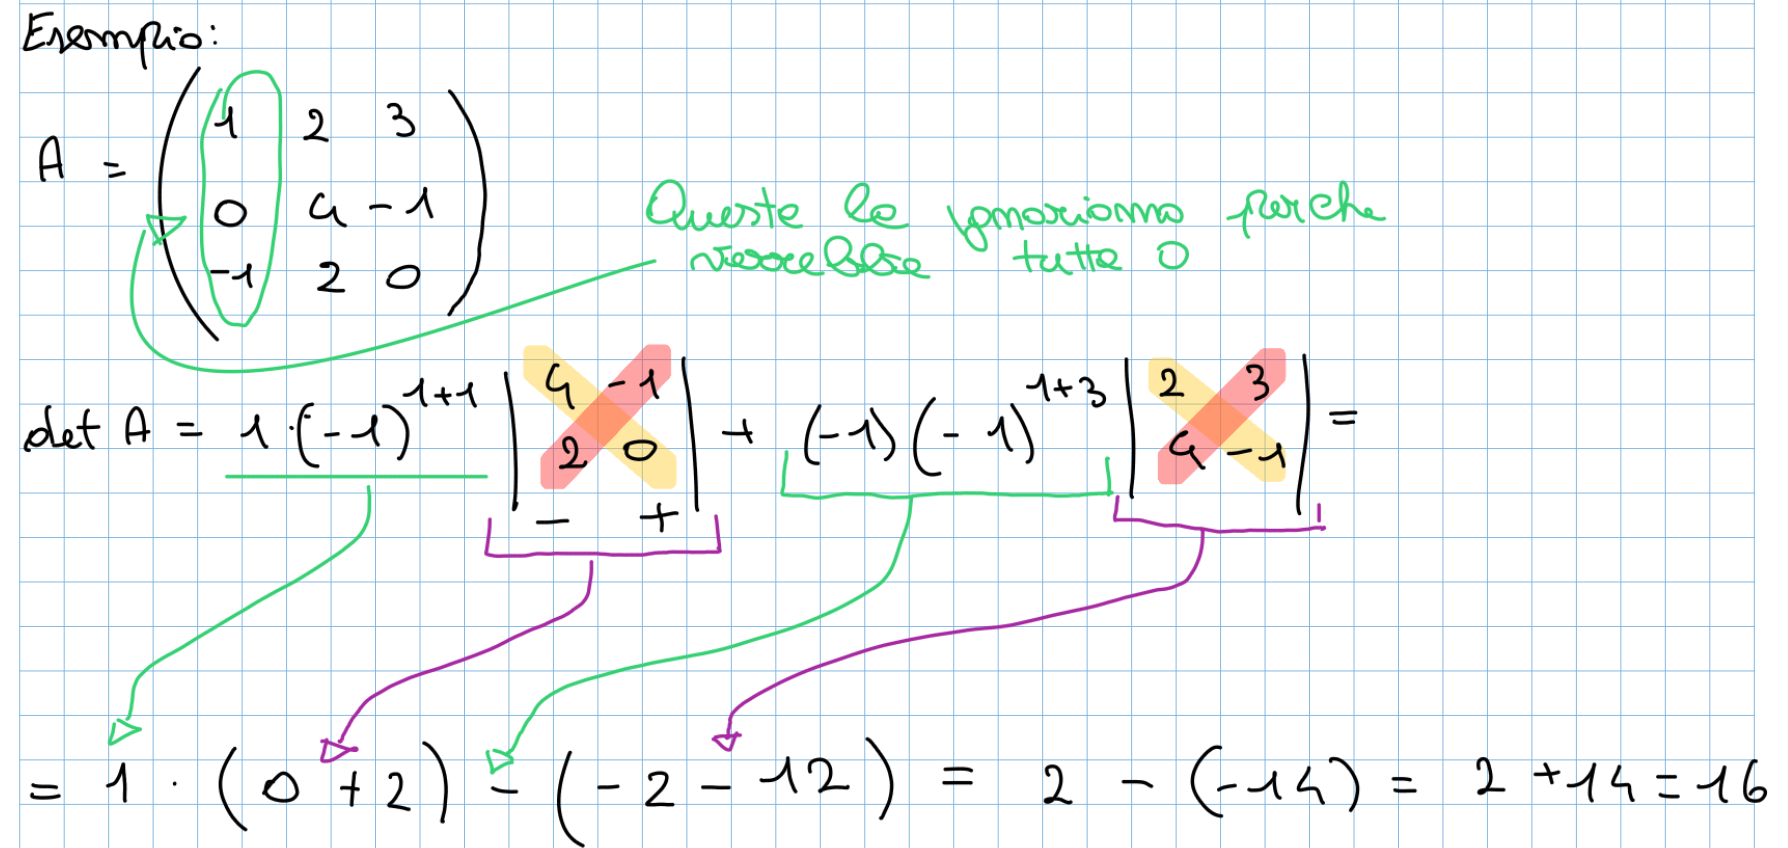 Esempio:
A = ( 1 2 3
0 4 -1
-1 2 0 )
Questa la ignoriamo perche
verrebbe tutto 0
det A = 1·(-1)^{1+1} | 4 -1 | + (-1)(-1)^{1+3} | 2 3 | =
2 0 4 -1
- +
= 1 · (0 + 2) - (-2 - 12) = 2 - (-14) = 2 + 14 = 16